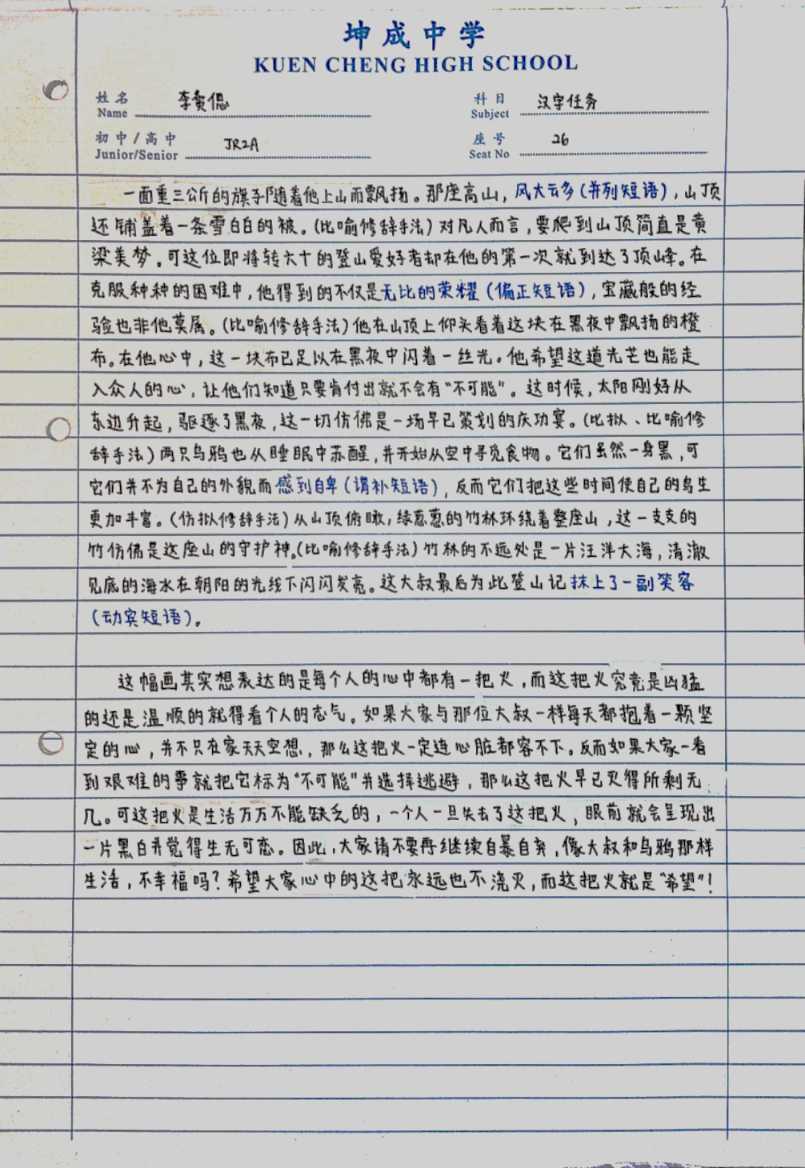 坤成中学
KUEN CHENG HIGH SCHOOL
姓名 Name 李 科目 Subject 汉字任务
初中/高中 Junior/Senior JR2A 座号 Seat No 26
一面重三公斤的旗子随着他上山而飘扬。那座高山，风大云多（并列短语），山顶
还铺盖着一条雪白白的被。（比喻修辞手法）对凡人而言，要爬到山顶简直是黄
梁美梦。可这位即将转六十的登山爱好者却在他的第一次就到达了顶峰。在
克服种种的困难中，他得到的不仅是无比的荣耀（偏正短语），宝藏般的经
验也非他莫属。（比喻修辞手法）他在山顶上仰头看着这块在黑夜中飘扬的橙
布。在他心中，这一块布已足以在黑夜中闪着一丝光。他希望这道光芒也能走
入众人的心，让他们知道只要肯付出就不会有“不可能”。这时候，太阳刚好从
东边升起，驱逐了黑夜，这一切仿佛是一场早已策划的庆功宴。（比拟、比喻修
辞手法）两只乌鸦也从睡眠中苏醒，并开始从空中寻觅食物。它们虽然一身黑，可
它们并不为自己的外貌而感到自卑（谓补短语），反而它们把这些时间使自己的鸟生
更加丰富。（仿拟修辞手法）从山顶俯瞰，绿葱葱的竹林环绕着整座山，这一支支的
竹仿佛是这座山的守护神。（比喻修辞手法）竹林的不远处是一片汪洋大海，清澈
见底的海水在朝阳的光线下闪闪发亮。这大叔最后为此登山记抹上了一副笑容
（动宾短语）。
这幅画其实想表达的是每个人的心中都有一把火，而这把火究竟是凶猛
的还是温顺的就得看个人的志气。如果大家与那位大叔一样每天都抱着一颗坚
定的心，并不只在家天天空想，那么这把火一定连心脏都容不下。反而如果大家一看
到艰难的事就把它标为“不可能”并选择逃避，那么这把火早已灭得所剩无
几。可这把火是生活万万不能缺乏的，一个人一旦失去了这把火，眼前就会呈现出
一片黑白并觉得生无可恋。因此，大家请不要再继续自暴自弃，像大叔和乌鸦那样
生活，不幸福吗？希望大家心中的这把永远也不浇灭，而这把火就是“希望”！